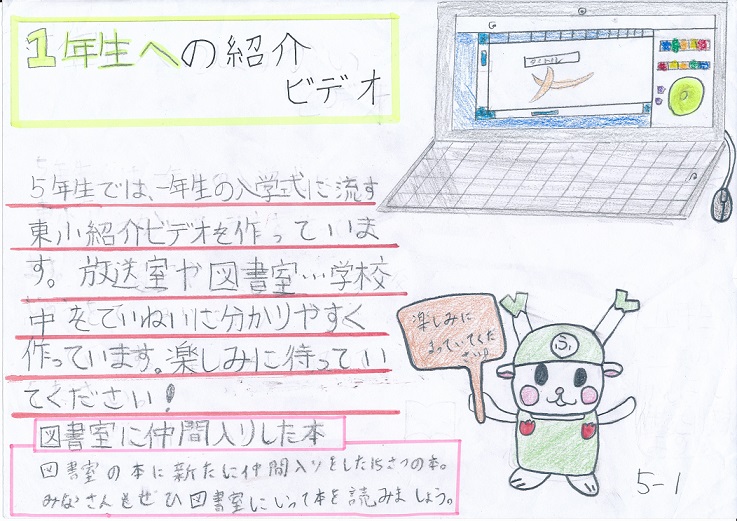 1年生への紹介
ビデオ
5年生では、一年生の入学式に流す
東小紹介ビデオを作っていま
す。放送室や図書室…学校
中をていねいに分かりやすく
作っています。楽しみに待ってい
てください!
楽しみに
まっていてくだ
さい!
ふ
図書室に仲間入りした本
図書室の本に新たに仲間入りをした15さつの本。
みなさんもぜひ図書室にいって本を読みましょう。
5-1